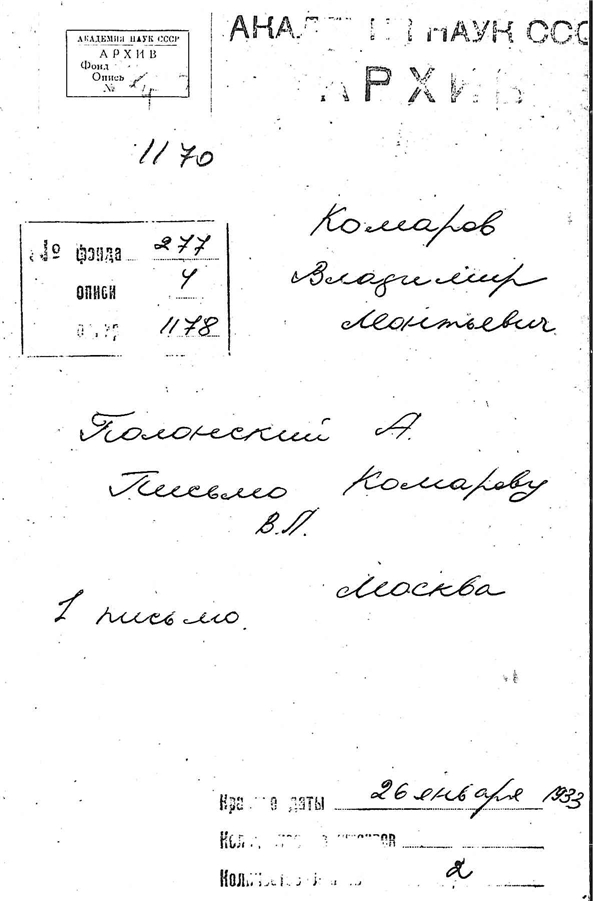 АКАДЕМИЯ НАУК СССР
АРХИВ
Фонд
Опись
№ 4
АКАДЕМИЯ НАУК СССР
АРХИВ
1170
№ фонда 277
описи 4
1178
Комаров
Владимир
Леонтьевич
Полонский А.
Письмо Комарову
В.Л.
Москва
1 письмо.
Крайние даты 26 января 1933
Количество 2